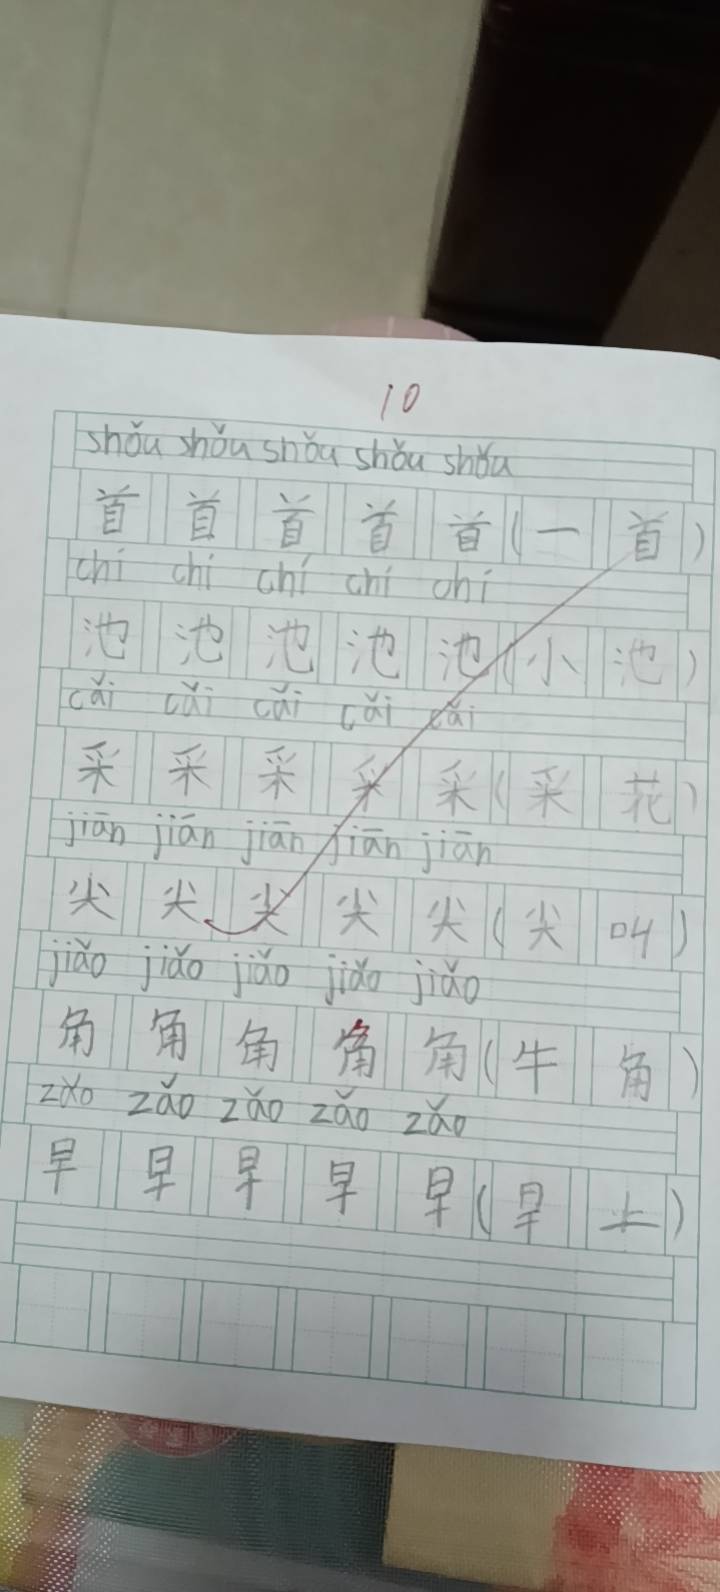 10
shǒu shǒu shǒu shǒu shǒu
首 首 首 首 首 (一 首)
chí chí chí chí chí
池 池 池 池 池 (小 池)
cǎi cǎi cǎi cǎi cǎi
采 采 采 采 采 (采 花)
jiān jiān jiān jiān jiān
尖 尖 尖 尖 尖 (尖 叫)
jiǎo jiǎo jiǎo jiǎo jiǎo
角 角 角 角 角 (牛 角)
zǎo zǎo zǎo zǎo zǎo
早 早 早 早 早 (早 上)